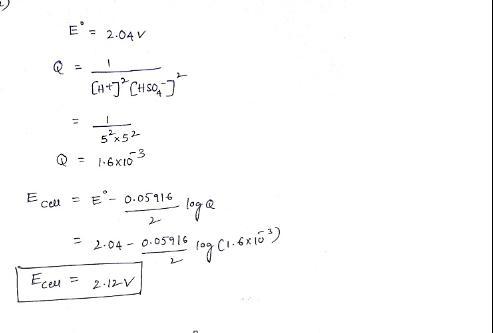 E° = 2.04V
Q = 1 / [H+]² [HSO₄⁻]²
= 1 / 5² × 5²
Q = 1.6×10⁻³
E cell = E° - 0.05916 / 2 log Q
= 2.04 - 0.05916 / 2 log (1.6×10⁻³)
E cell = 2.12V